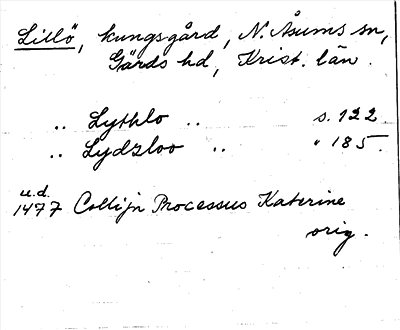 Lillö, kungsgård, N. Åsums sn,
Gärds hd, Krist. län.
.. Lythlo .. s. 122
.. Lydzloo .. " 185.
u.d.
1477 Collijn Processus Katerine
orig.